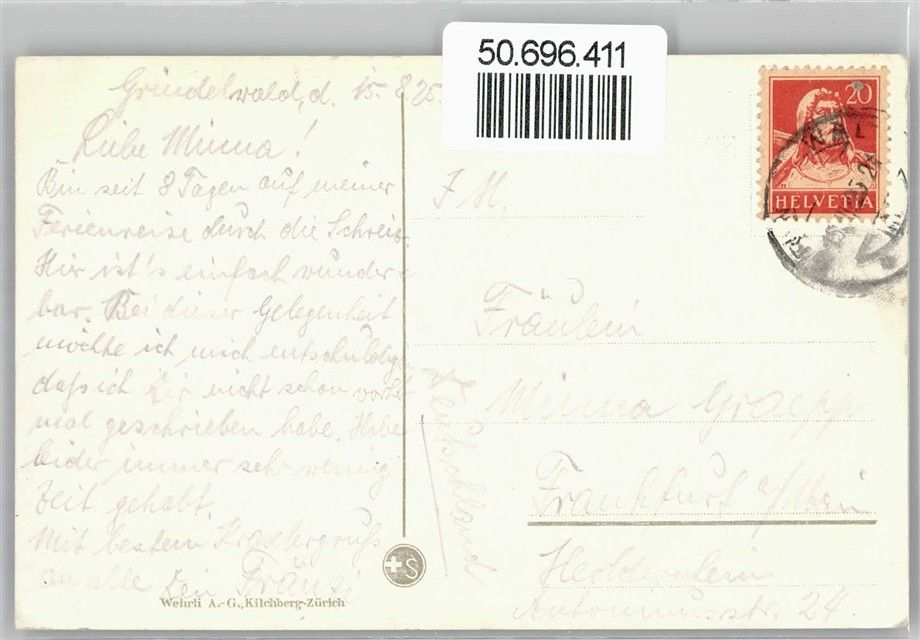 50.696.411
Grindelwald, d. 15. 8 25.
Liebe Minna!
Bin seit 8 Tagen auf meiner
Ferienreise durch die Schweiz.
Hir ist's einfach wunder-
bar. Bei dieser Gelegenheit
möchte ich mich entschuldigen
daß ich Dir nicht schon
mal geschrieben habe. Habe
leider immer sehr wenig
Zeit gehabt.
Mit bestem
an alle Dein Fränzi
Wehrli A.-G., Kilchberg-Zürich
+S
20
HELVETIA
Fräulein
Minna Graepp
Frankfurt a/Main
Heddernheim
Antoninusstr. 24.
Deutschland